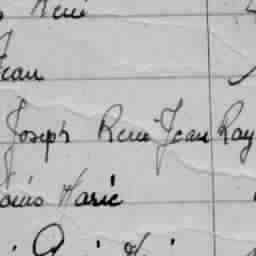 René
Jean
Joseph René Jean Ray
Louis Marie